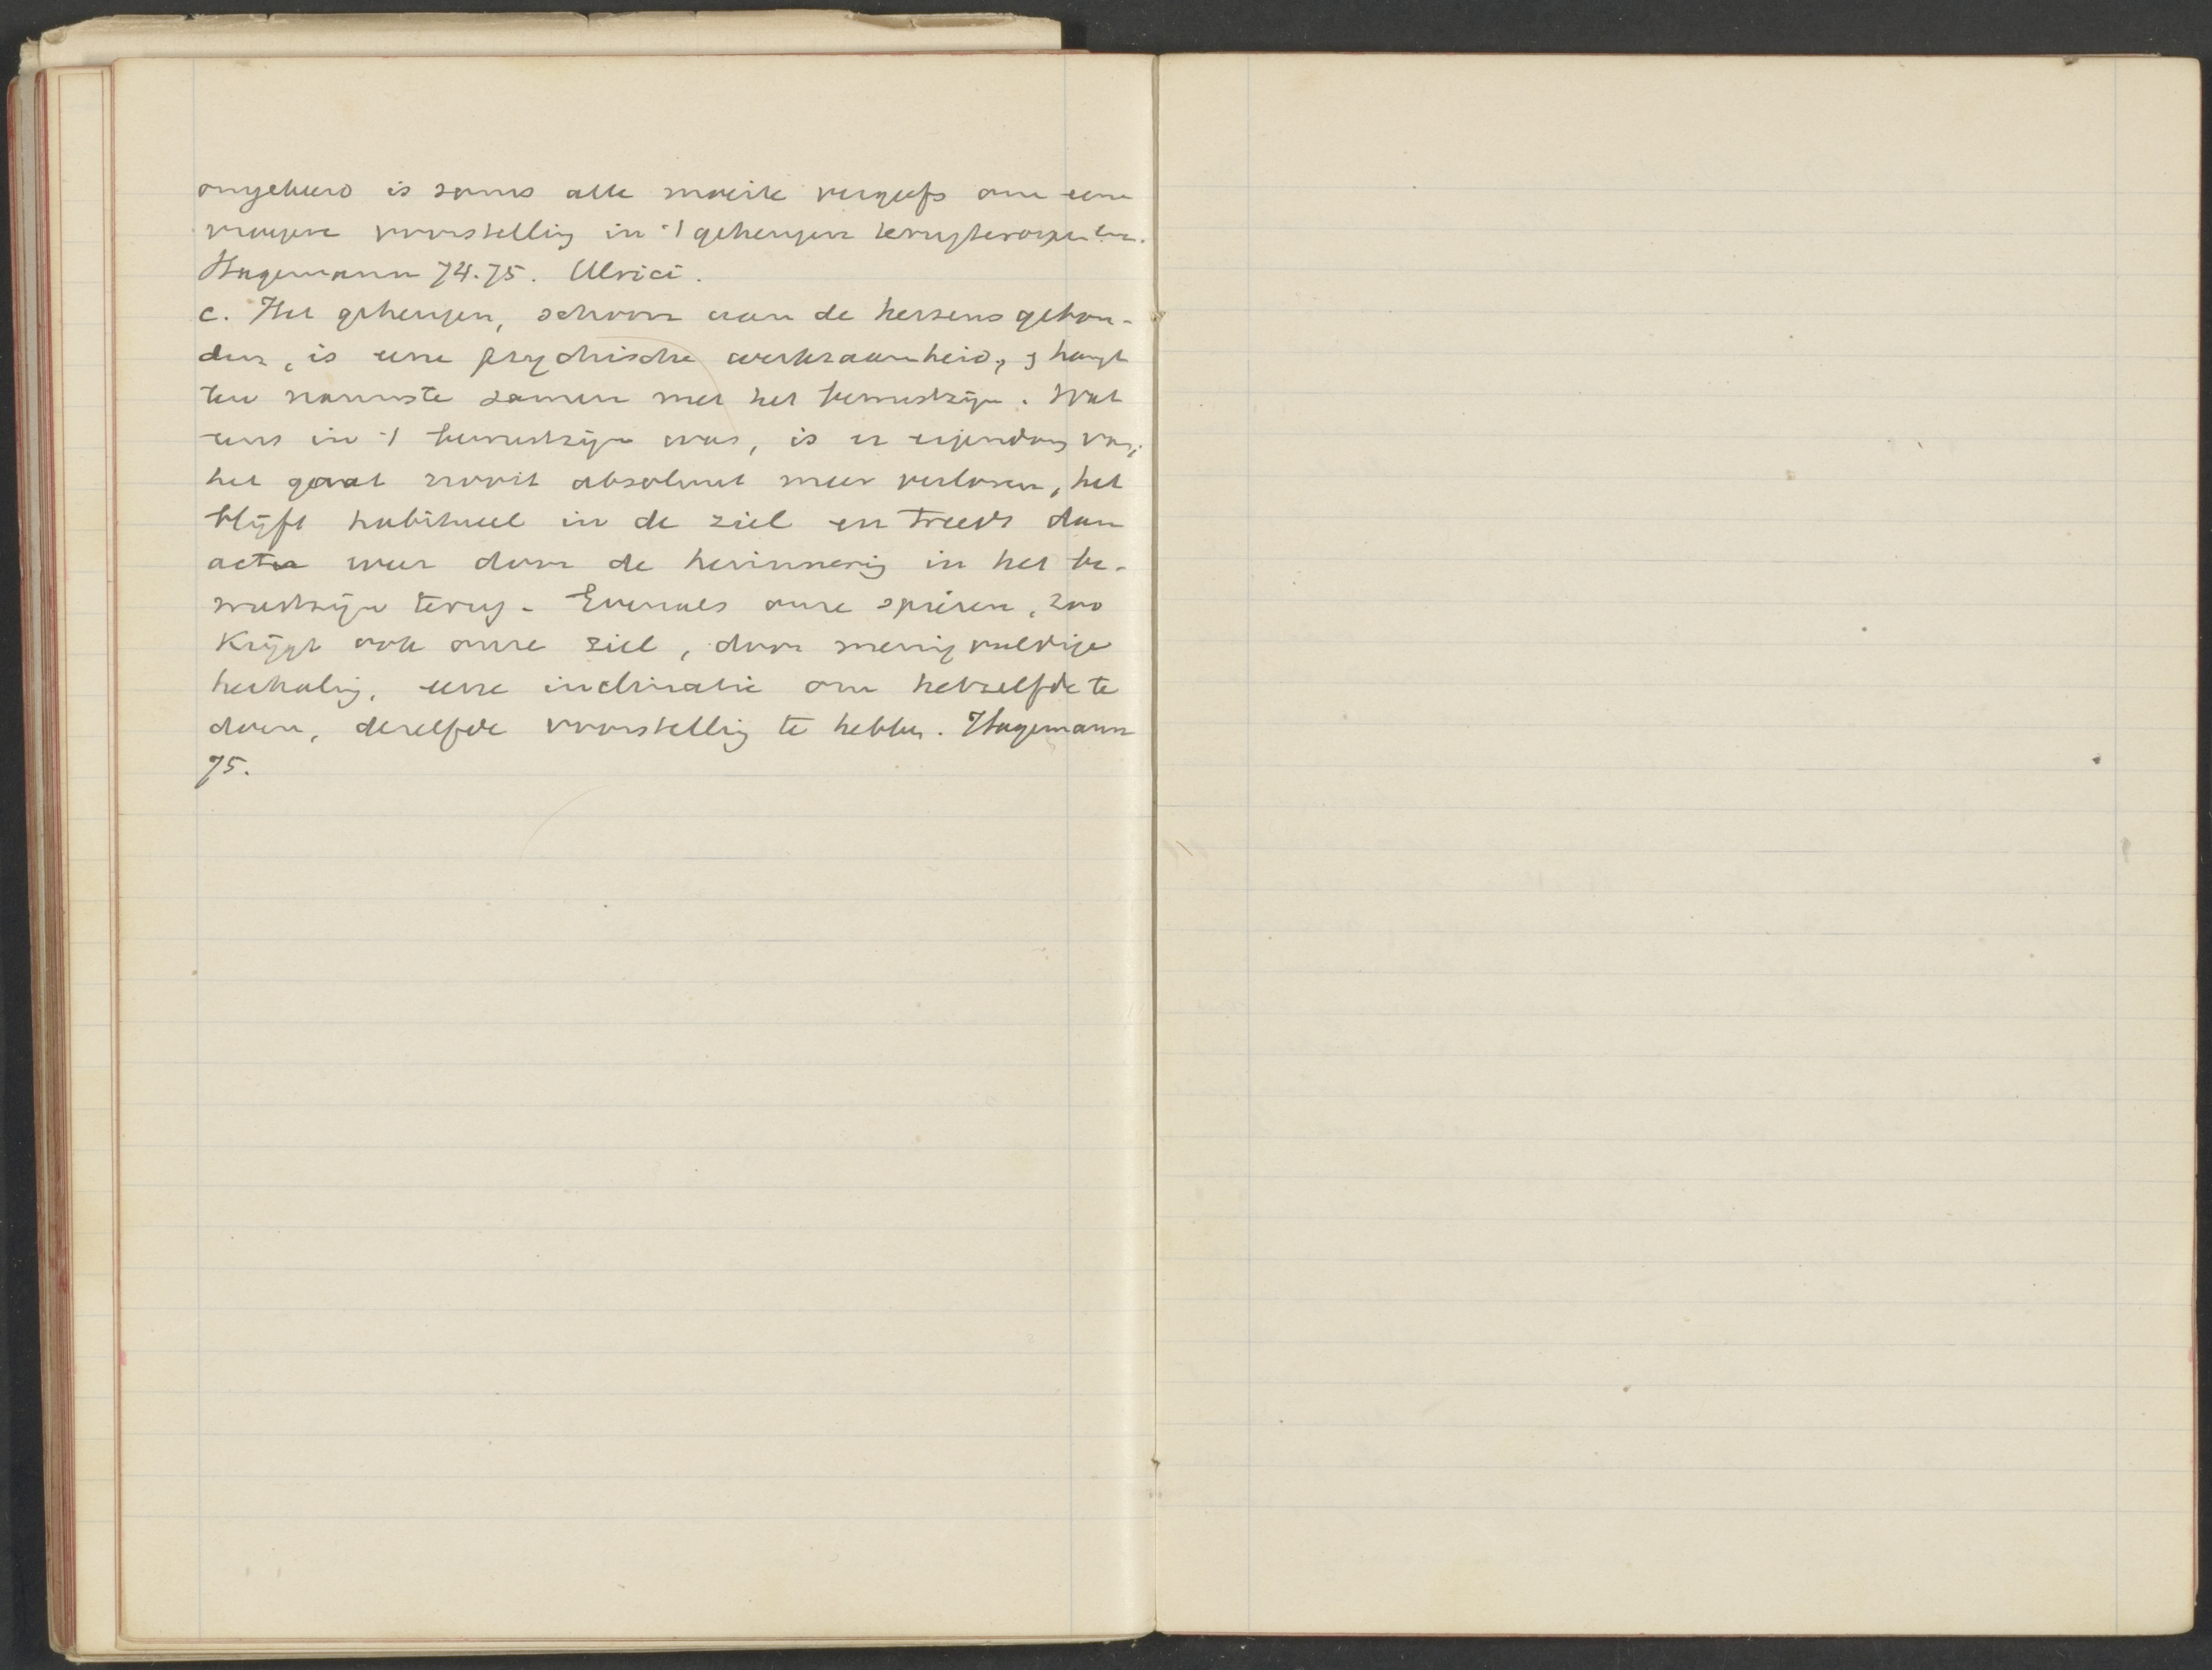 omgekeerd is soms alle moeite vergeefs om eene
vroegere voorstelling in 't geheugen terug te roepen.
Hagemann 74.75. Ulrici.
c. Het geheugen, schoon aan de hersens gebon-
den, is eene psychische werkzaamheid, & hangt
ten nauwste samen met het bewustzijn. Wat
eens in 't bewustzijn was, is er eigendom van;
het gaat nooit absoluut meer verloren, het
blijft habitueel in de ziel en treedt dan
actu weer door de herinnering in het be-
wustzijn terug. Evenals onze spieren, zoo
krijgt ook onze ziel, door menigvuldige
herhaling, eene inclinatie om hetzelfde te
doen, dezelfde voorstelling te hebben. Hagemann
75.